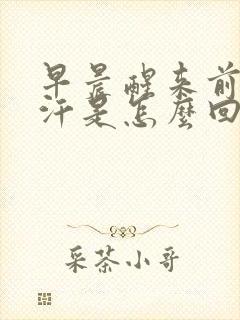 早晨醒来前
汗是怎麼回
采茶小哥